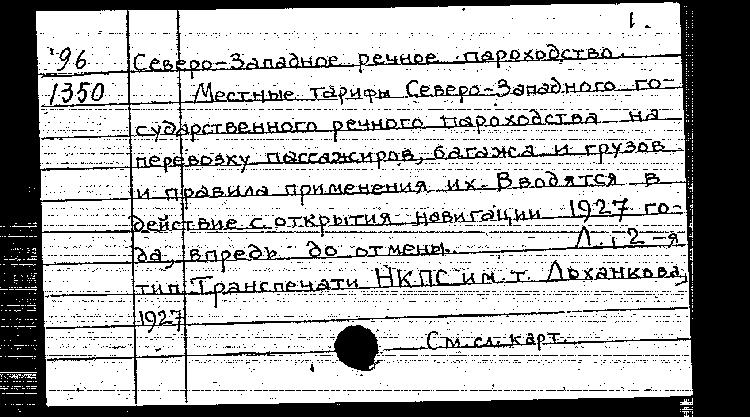 1.
96 Северо-Западное речное пароходство.
1350 Местные тарифы Северо-Западного го-
сударственного речного пароходства на
перевозку пассажиров, багажа и грузов
и правила применения их. Вводятся в
действие с открытия навигации 1927 го-
да, впредь до отмены. Л., 2-я
тип. Транспечати НКПС им. т. Лоханкова,
1927
См. сл. карт.